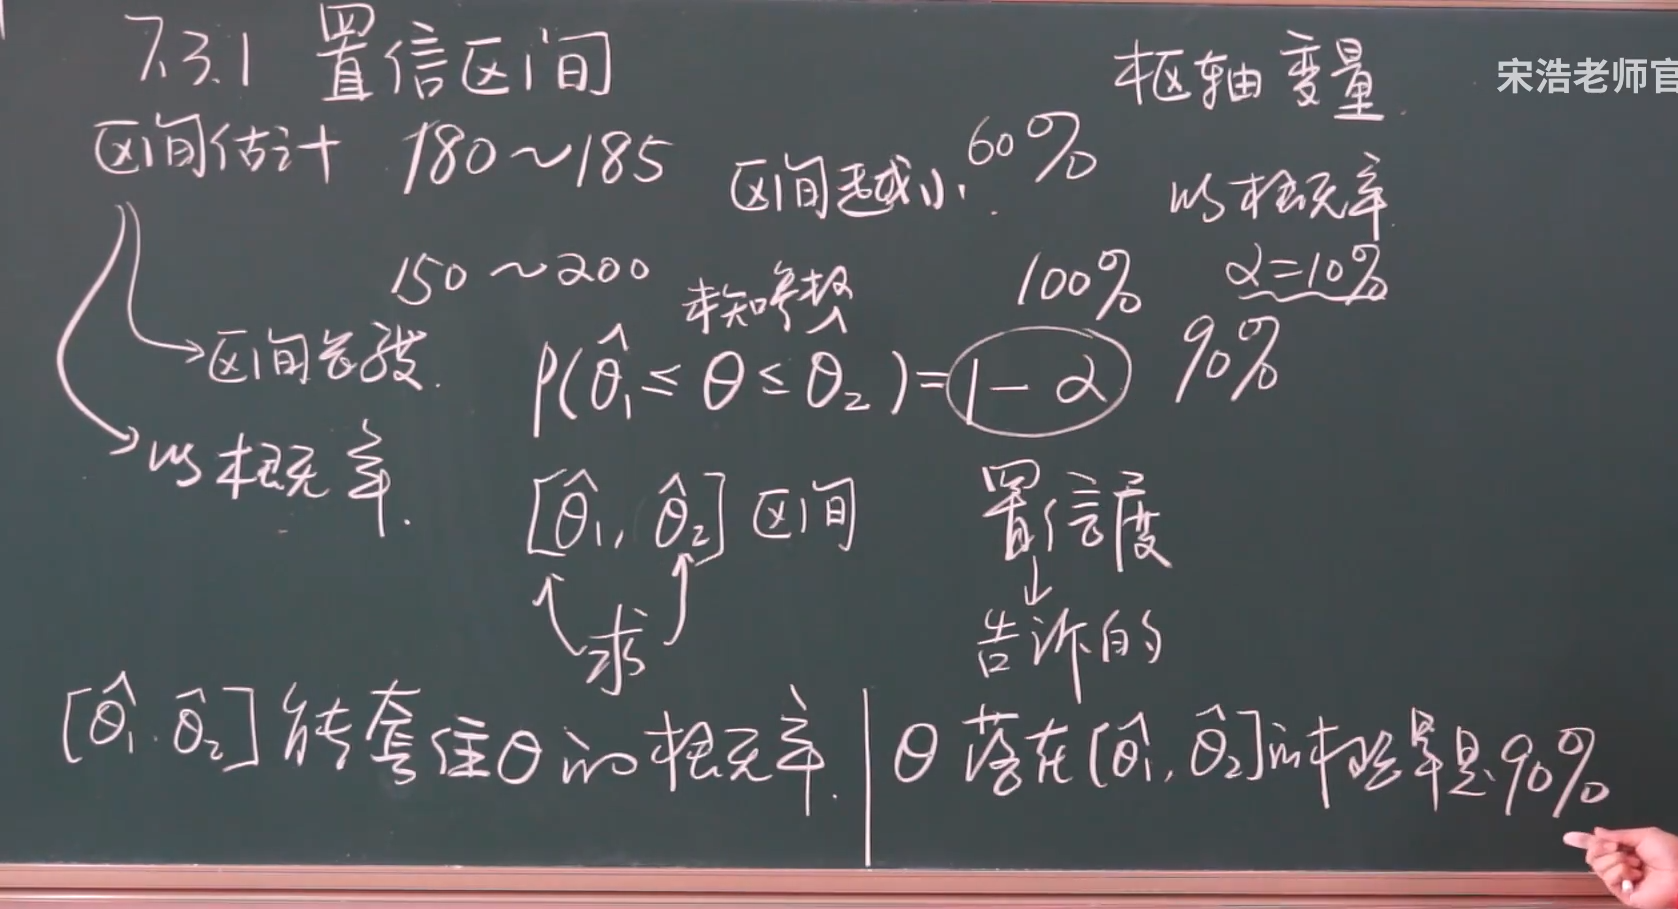 7.3.1 置信区间
枢轴变量
宋浩老师官
区间估计 180~185
区间越小. 60%
以概率
150~200
100%
α=10%
未知参数
区间长度.
P(θ̂₁≤θ≤θ̂₂)=1-α
90%
以概率.
[θ̂₁, θ̂₂]区间
置信度
求
告诉的
[θ̂₁, θ̂₂]能套住θ的概率.
θ落在[θ̂₁, θ̂₂]的概率是90%